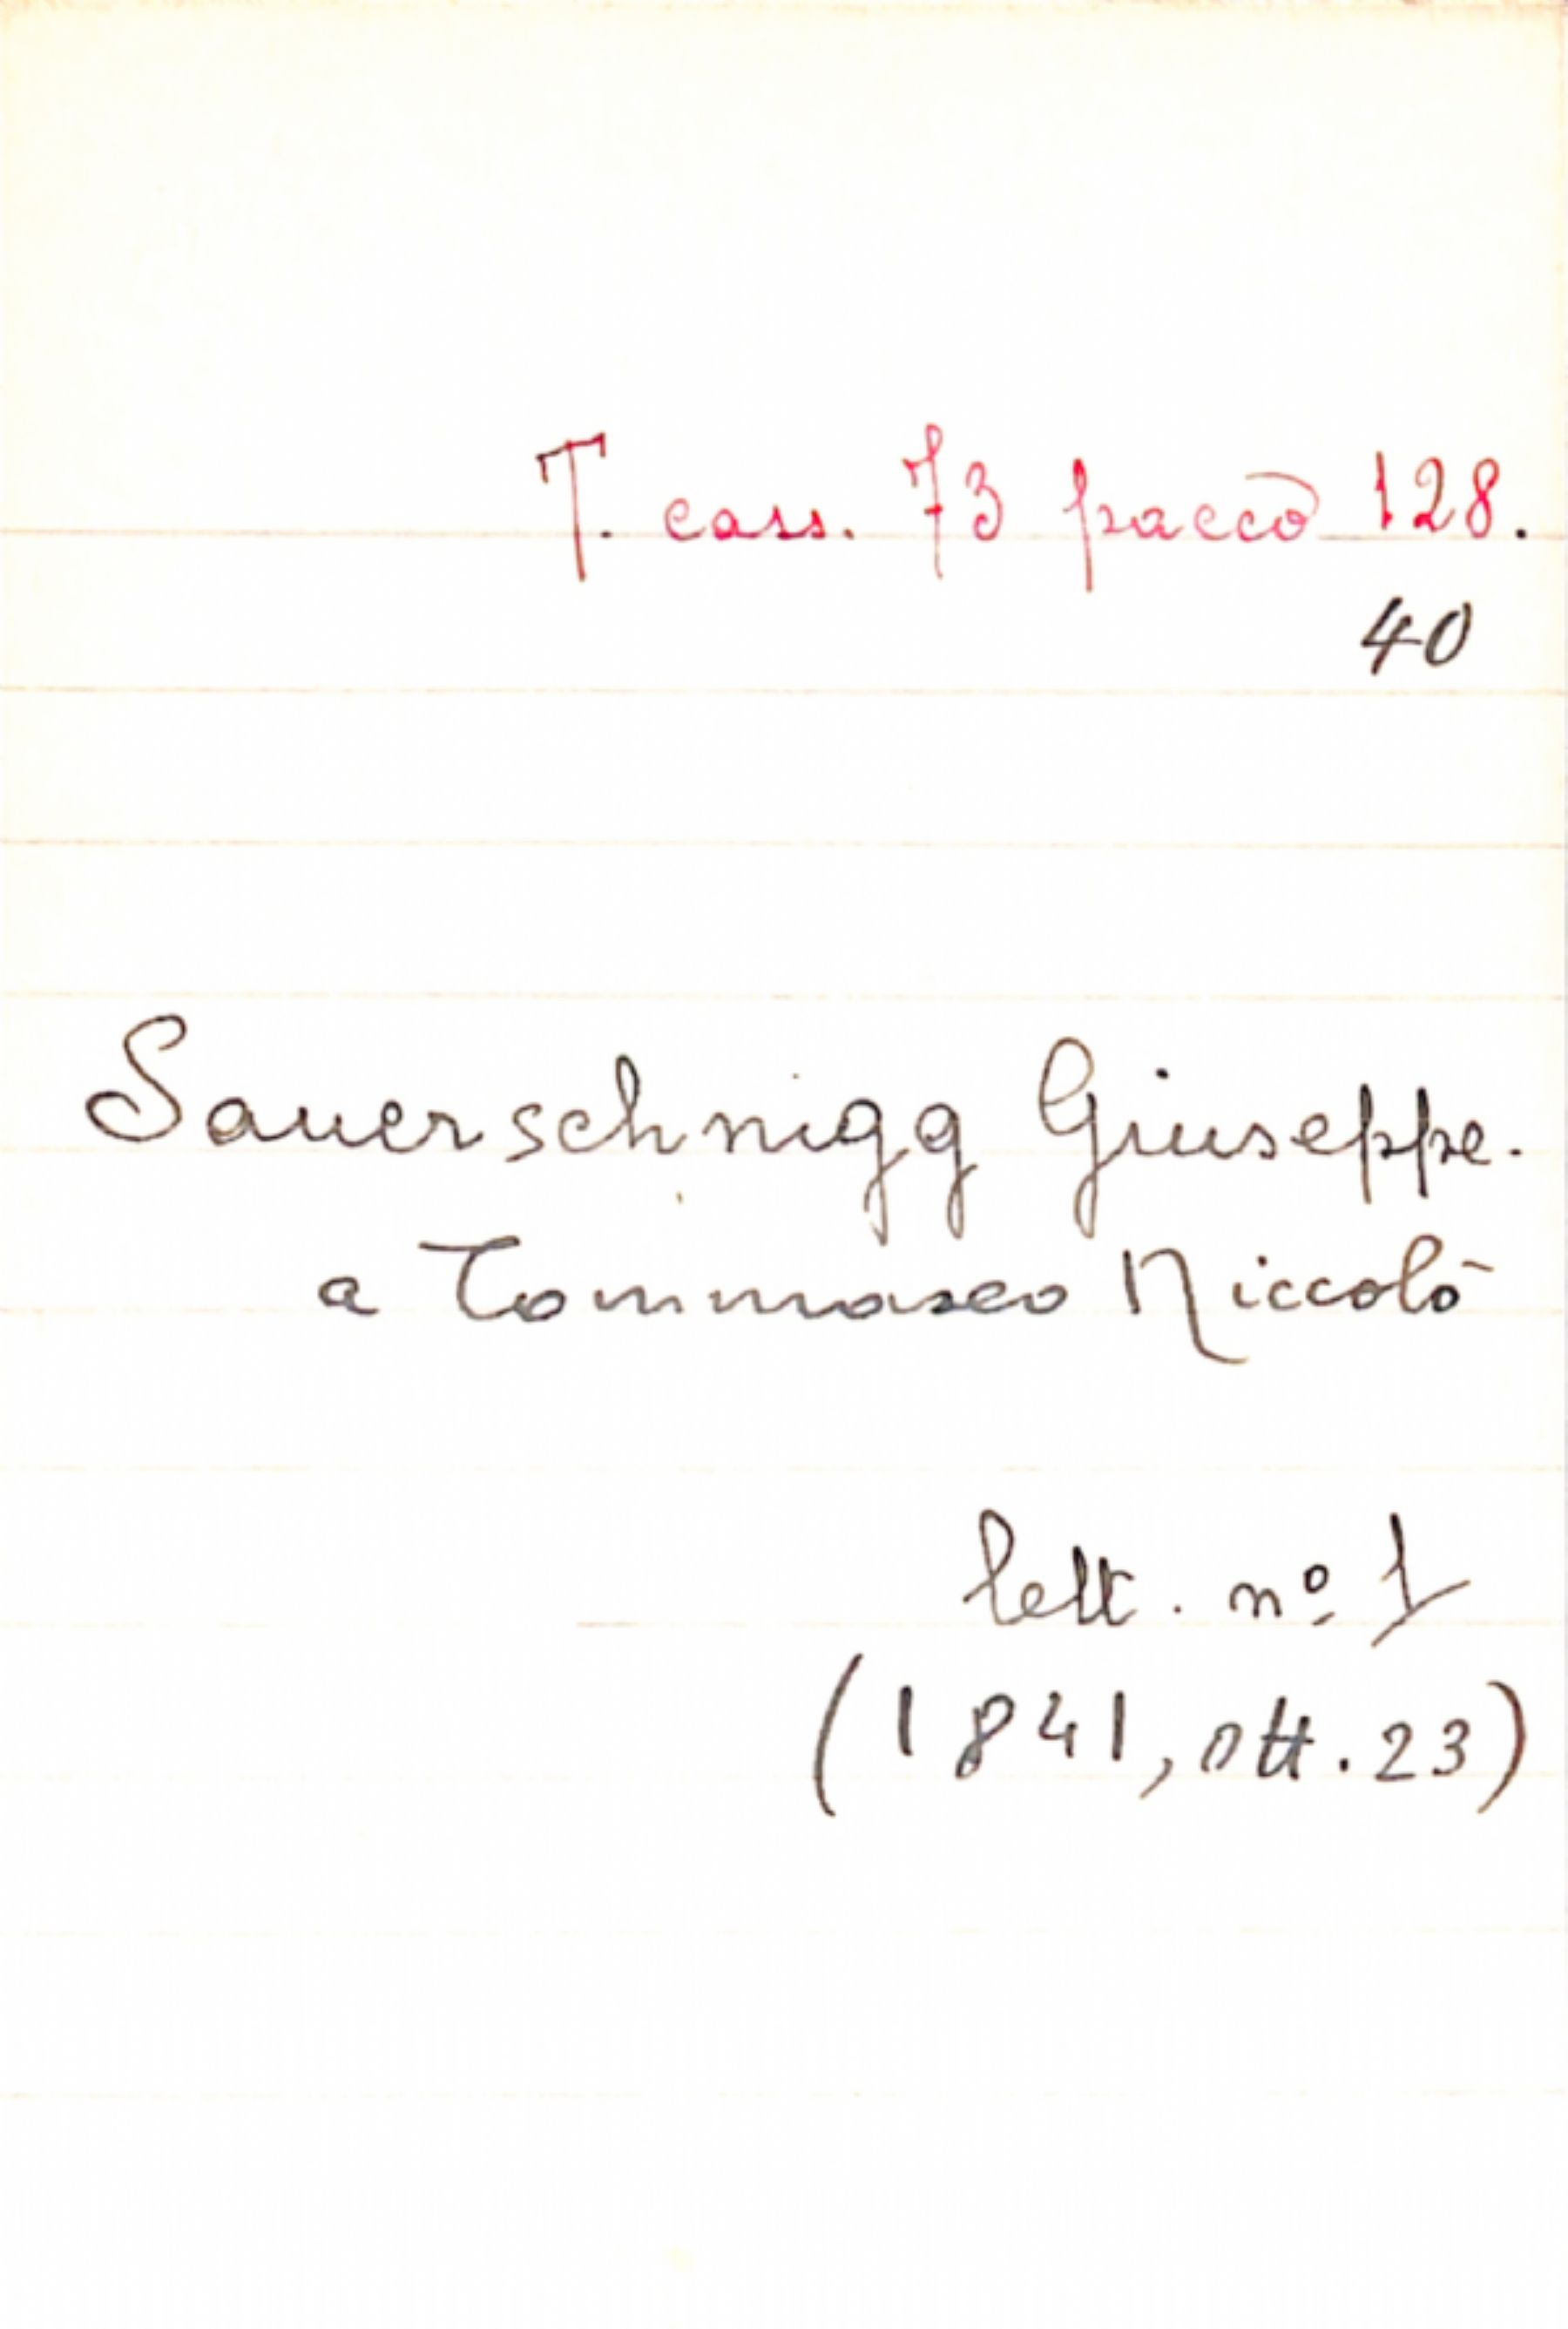 T. cass. 73 pacco 128.
40
Sauerschnigg Giuseppe.
a Tommaseo Niccolò
lett. nº 1
(1841, ott. 23)